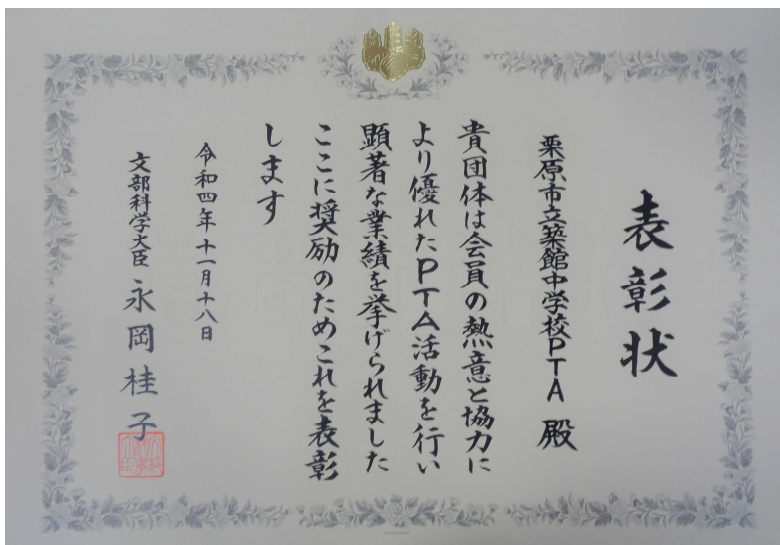 表彰状
栗原市立築館中学校PTA 殿
貴団体は会員の熱意と協力に
より優れたPTA活動を行い
顕著な業績を挙げられました
ここに奨励のためこれを表彰
します
令和四年十一月十八日
文部科学大臣 永岡桂子